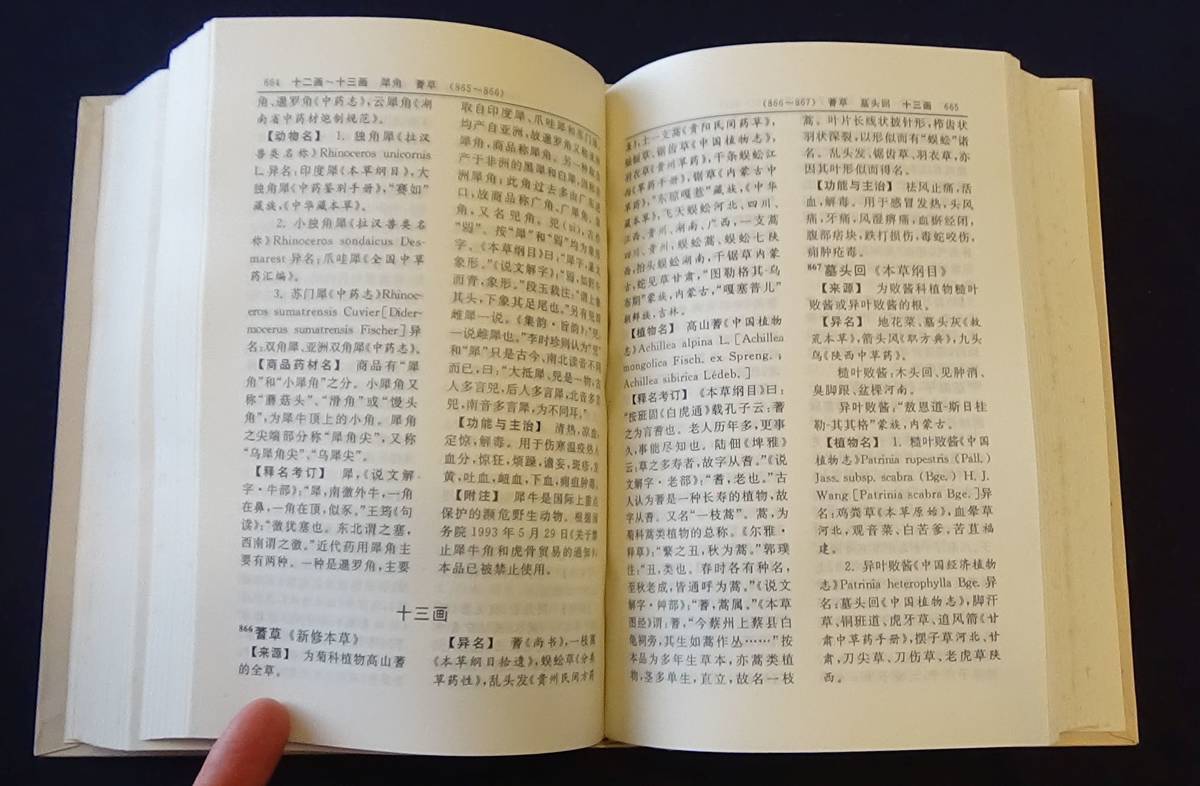 664 十二画~十三画 犀角 蓍草 (865~866)
角、暹罗角《中药志》,云犀角《湖
南省中药材炮制规范》。
【动物名】 1. 独角犀《拉汉
兽类名称》Rhinoceros unicornis
L.异名:印度犀《本草纲目》,大
独角犀《中药鉴别手册》,“赛如”
藏族,《中华藏本草》。
2. 小独角犀《拉汉兽类名
称》Rhinoceros sondaicus Des-
marest 异名:爪哇犀《全国中草
药汇编》。
3. 苏门犀《中药志》Rhinoc-
eros sumatrensis Cuvier[Dider-
mocerus sumatrensis Fischer]异
名:双角犀、亚洲双角犀《中药志》。
【商品药材名】 商品有“犀
角”和“小犀角”之分。小犀角又
称“蘑菇头”、“滑角”或“馒头
角”,为犀牛顶上的小角。犀角
之尖端部分称“犀角尖”,又称
“乌犀角尖”、“乌犀尖”。
【释名考订】 犀,《说文解
字·牛部》:“犀,南徼外牛,一角
在鼻,一角在顶,似豕。”王筠《句
读》:“徼犹塞也。东北谓之塞,
西南谓之徼。”近代药用犀角主
要有两种。一种是暹罗角,主要
取自印度犀、爪哇犀和苏门犀,
均产自亚洲,故暹罗角又称
犀角,商品称犀角。另一种
产于非洲的黑犀和白犀,
洲犀角;此角过去多由广东进
口,故商品称广角、广犀角、
角,又名兕角。兕(sì),古作
“𤉡”。按“犀”和“𤉡”均为象形
字。《本草纲目》曰:“犀字,篆文
象形。”《说文解字》:“𤉡,如野牛
而青,象形。”段玉裁注:“谓上象
其头,下象其足尾也。”另有兕即
雌犀一说。《集韵·旨韵》:“兕,
一说雌犀也。”李时珍则认为“兕”
和“犀”只是古今、南北读音不同
而已,曰:“大抵犀、兕是一物,古
人多言兕,后人多言犀,北音多言
兕,南音多言犀,为不同耳。”
【功能与主治】 清热,凉血,
定惊,解毒。用于伤寒温疫热入
血分,惊狂,烦躁,谵妄,斑疹,发
黄,吐血,衄血,下血,痈疽肿毒。
【附注】 犀牛是国际上重点
保护的濒危野生动物。根据国
务院1993年5月29日《关于禁
止犀牛角和虎骨贸易的通知》,
本品已被禁止使用。
十三画
866蓍草《新修本草》
【来源】 为菊科植物高山蓍
的全草。
【异名】 蓍《尚书》,一枝蒿
《本草纲目拾遗》,蜈蚣草《分类
草药性》,乱头发《贵州民间方药
(866~867) 蓍草 墓头回 十三画 665
集》,上一支蒿《贵阳民间药草》,
锯草、锯齿草《中国植物志》,
羽衣草《贵州草药》,千条蜈蚣江
西《草药手册》,锯草《内蒙古中
草药》,“东琼嘎惹”藏族,《中华
藏本草》,飞天蜈蚣河北、四川、
江西、贵州、湖南、广西,一支蒿
四川、贵州,蜈蚣蒿、蜈蚣七陕
西,抬头蜈蚣湖南,千锯草内蒙
古,蛇见草甘肃,“图勒格其-乌
布期”蒙族,内蒙古,“嘎塞普儿”
朝鲜族,吉林。
【植物名】 高山蓍《中国植物
志》Achillea alpina L. [Achillea
mongolica Fisch. ex Spreng.;
Achillea sibirica Ledeb.]
【释名考订】 《本草纲目》曰:
“按班固《白虎通》载孔子云:蓍
之为言耆也。老人历年多,更事
久,事能尽知也。陆佃《埤雅》
云:草之多寿者,故字从耆。”《说
文解字·老部》:“耆,老也。”古
人认为蓍是一种长寿的植物,故
字从耆。又名“一枝蒿”。蒿,为
菊科蒿类植物的总称。《尔雅·
释草》:“蘩之丑,秋为蒿。”郭璞
注:“丑,类也。春时各有种名,
至秋老成,皆通呼为蒿。”《说文
解字·艸部》:“蓍,蒿属。”《本草
图经》谓:蓍,“今蔡州上蔡县白
龟祠旁,其生如蒿作丛……”按
本品为多年生草本,亦蒿类植
物,茎多单生,直立,故名一枝
蒿。叶片长线状披针形,栉齿状
羽状深裂,以形似而有“蜈蚣”诸
名。乱头发、锯齿草、羽衣草,亦
因其叶形似而得名。
【功能与主治】 祛风止痛,活
血,解毒。用于感冒发热,头风
痛,牙痛,风湿痹痛,血瘀经闭,
腹部痞块,跌打损伤,毒蛇咬伤,
痈肿疮毒。
867墓头回《本草纲目》
【来源】 为败酱科植物糙叶
败酱或异叶败酱的根。
【异名】 地花菜、墓头灰《救
荒本草》,箭头风《职方典》,九头
鸟《陕西中草药》。
糙叶败酱:木头回、见肿消、
臭脚跟、盆棵河南。
异叶败酱:“敖恩道-斯日桂
勒-其其格”蒙族,内蒙古。
【植物名】 1. 糙叶败酱《中国
植物志》Patrinia rupestris (Pall.)
Jass. subsp. scabra (Bge.) H. J.
Wang [Patrinia scabra Bge.]异
名:鸡粪草《本草原始》,血晕草
河北,观音菜、白苦爹、苦苴福
建。
2. 异叶败酱《中国经济植物
志》Patrinia heterophylla Bge. 异
名:墓头回《中国植物志》,脚汗
草、铜班道、虎牙草、追风箭《甘
肃中草药手册》,摆子草河北、甘
肃,刀尖草、刀伤草、老虎草陕
西。